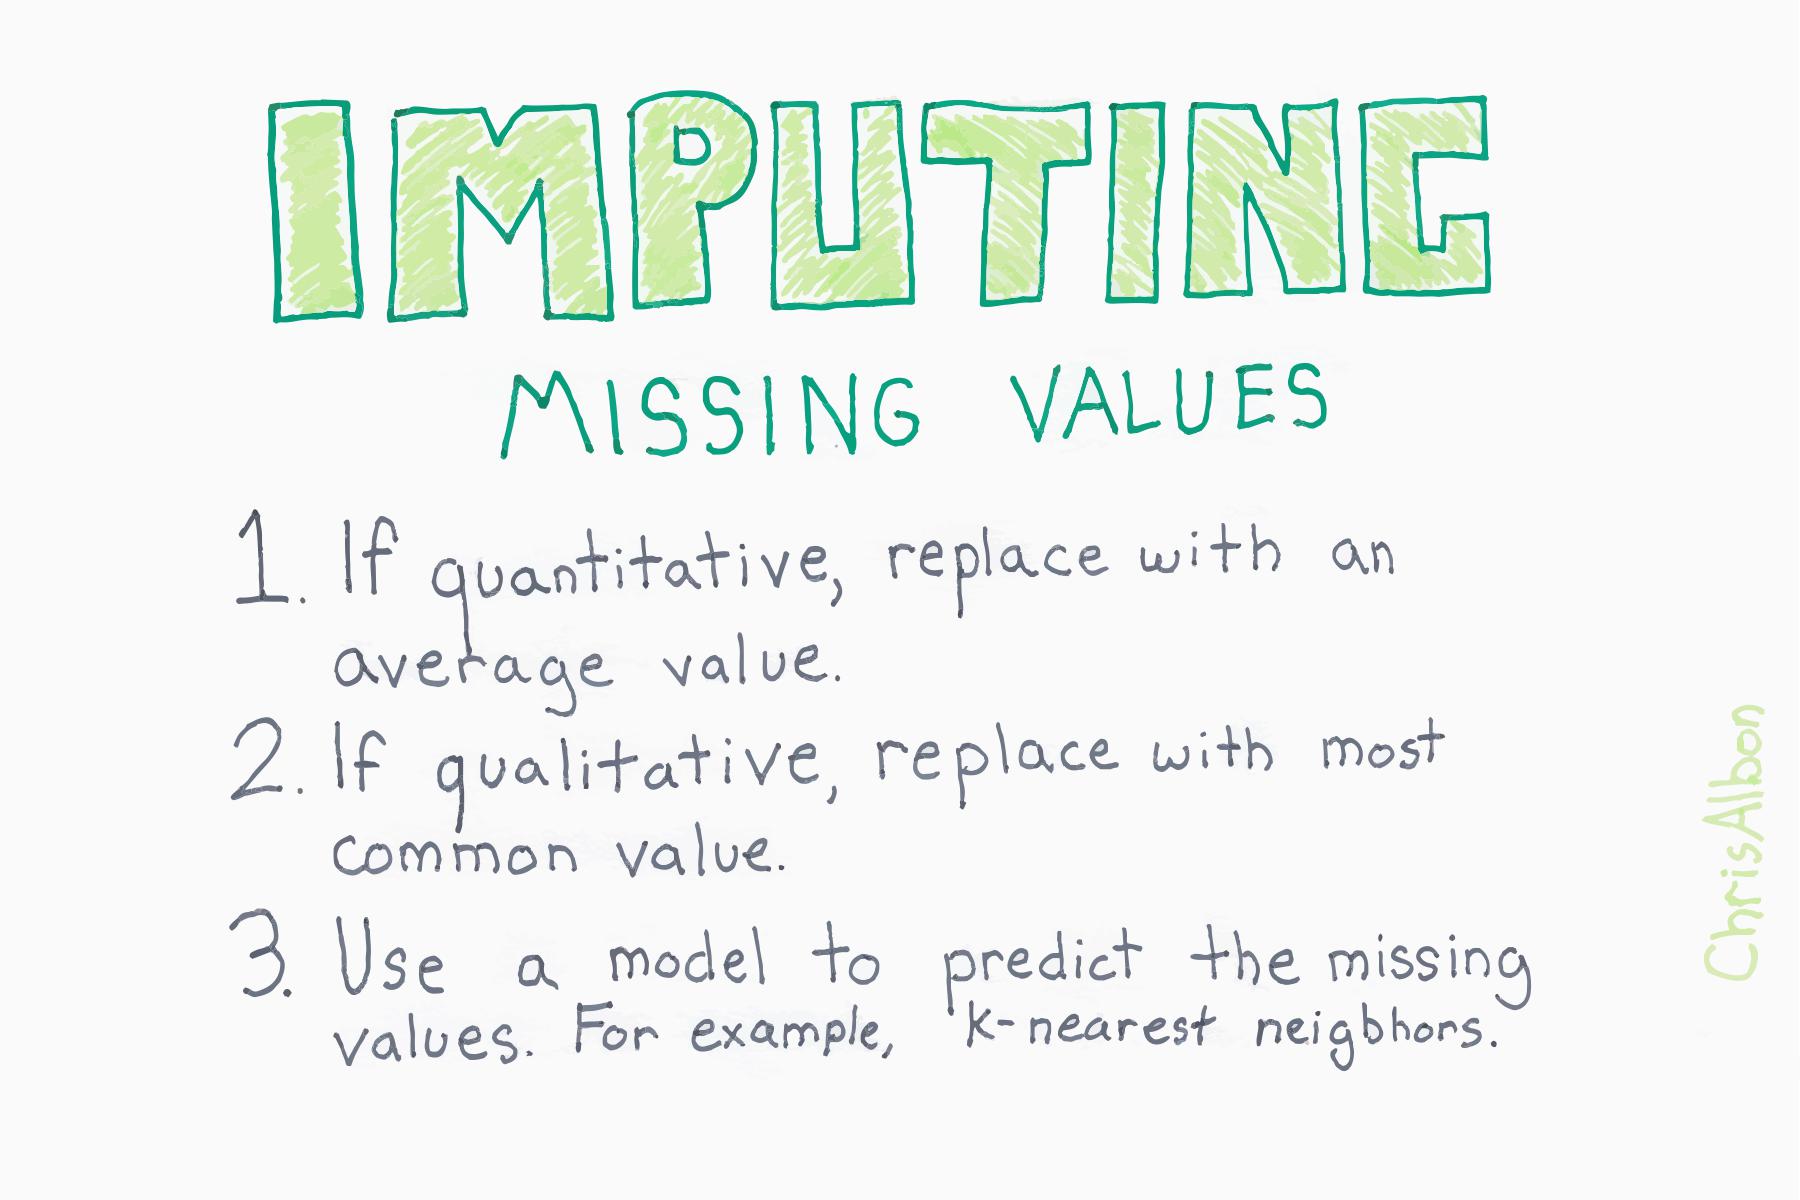 IMPUTING
MISSING VALUES
1. If quantitative, replace with an
average value.
2. If qualitative, replace with most
common value.
3. Use a model to predict the missing
values. For example, k-nearest neigbhors.
ChrisAlbon